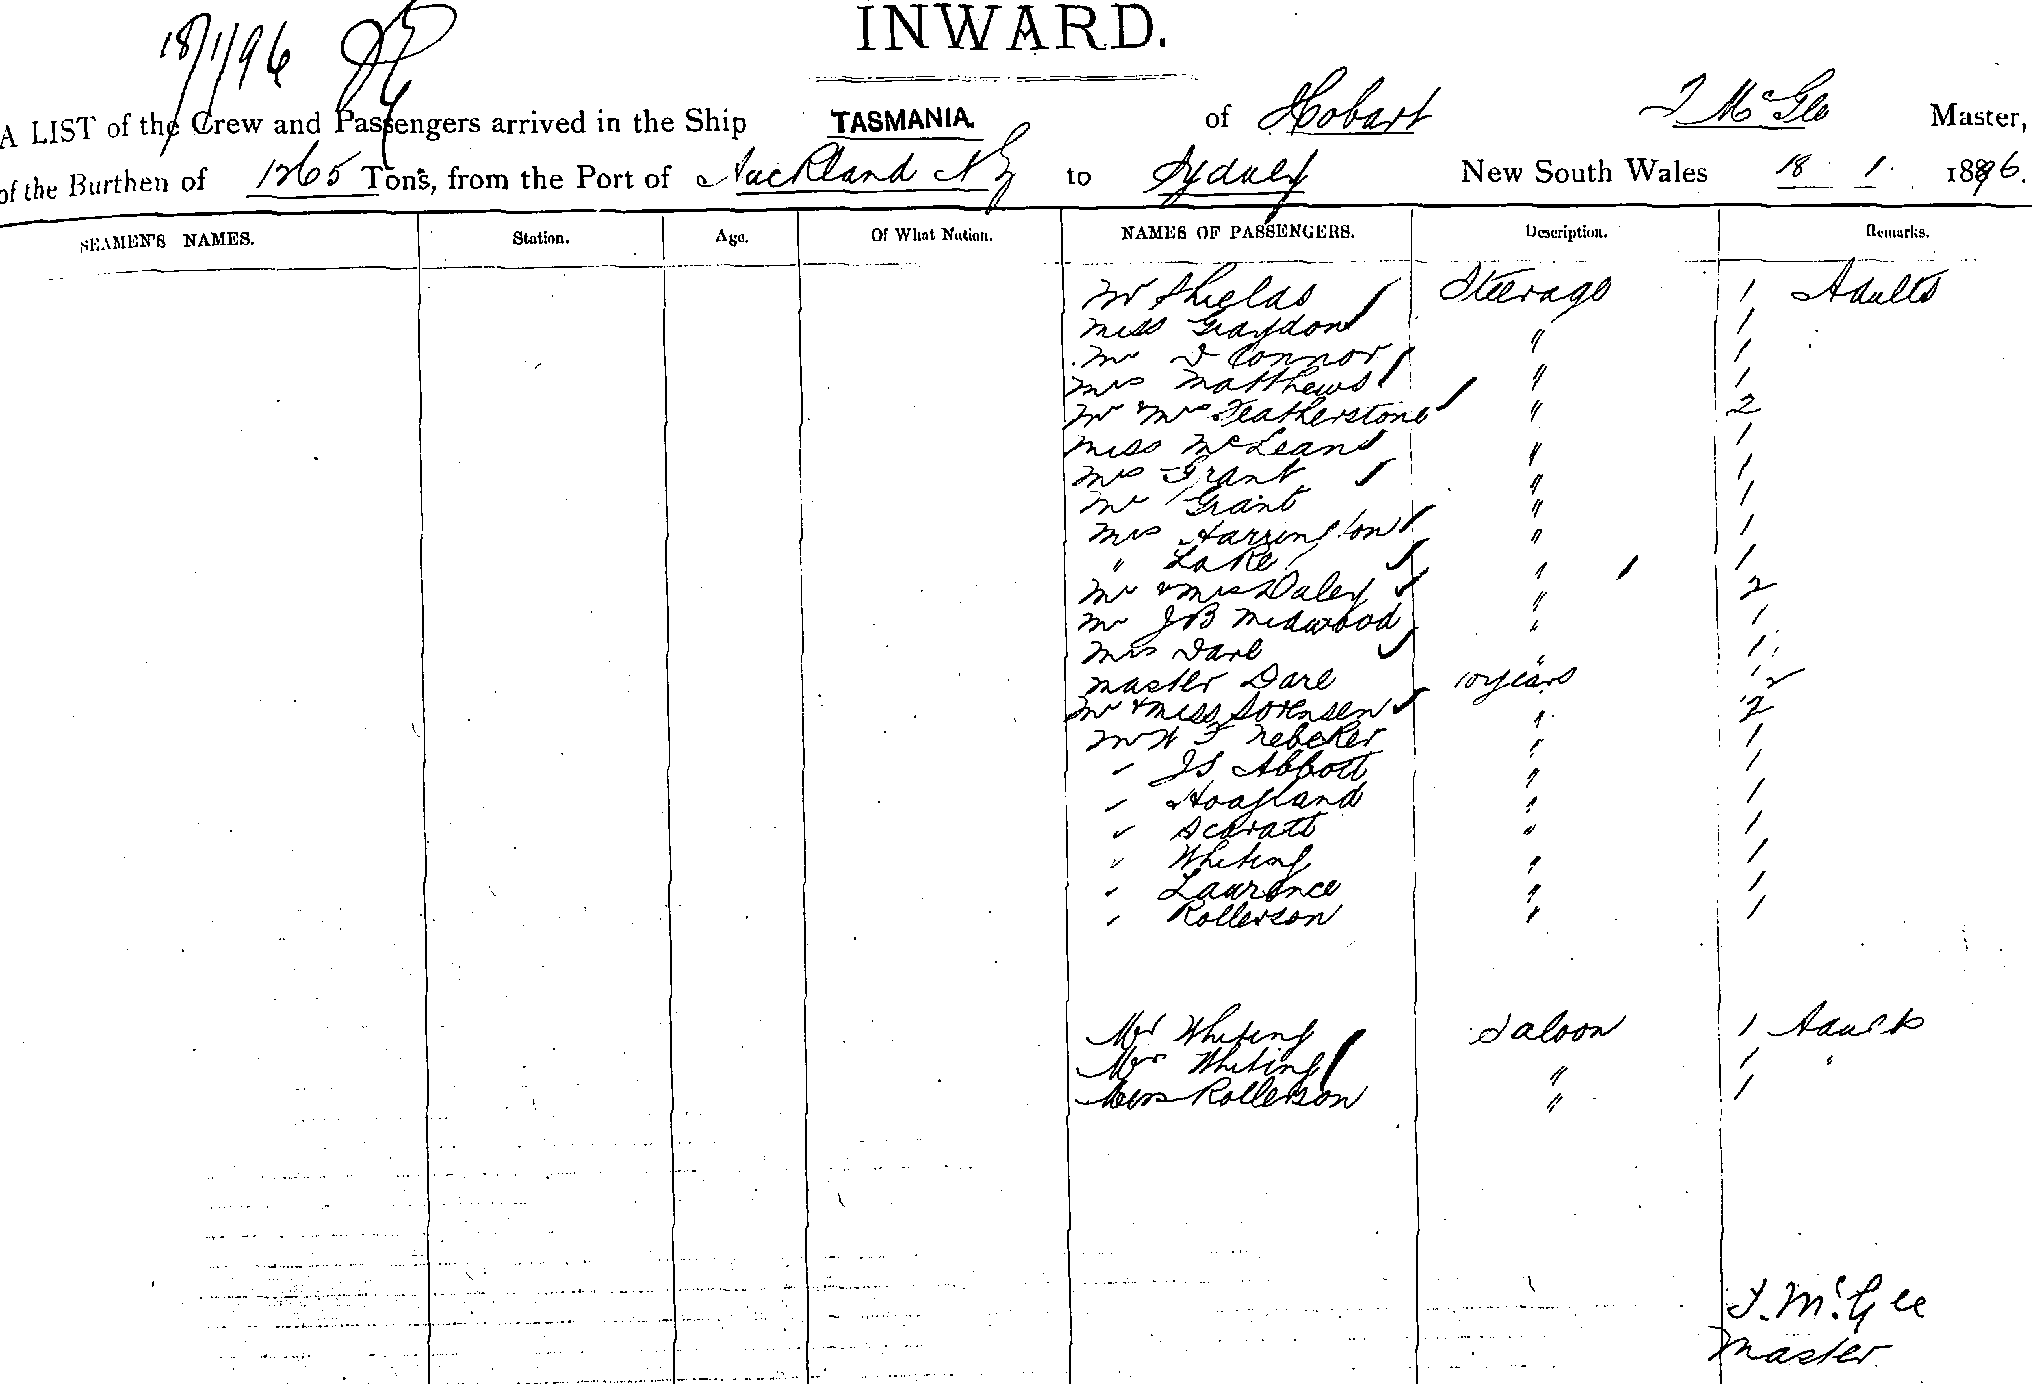 INWARD.
18/1/96
A LIST of the Crew and Passengers arrived in the Ship TASMANIA. of Hobart T McGee Master,
of the Burthen of 1265 Tons, from the Port of Auckland NZ to Sydney New South Wales 18 1. 1896.
SEAMEN'S NAMES. Station. Age. Of What Nation. NAMES OF PASSENGERS. Description. Remarks.
Mr Shields Steerage 1 Adults
Miss Graydon " 1
Mr O Connor " 1
Mrs Matthews " 1
Mr & Mrs Featherstone " 2
Miss McLean " 1
Mrs Grant " 1
Mr Grant " 1
Mrs Harrington " 1
" Lake " 1
Mr & Mrs Daley " 2
Mr JB Midwood " 1
Mrs Dare " 1
Master Dare 10 years
Mr & Miss Sorensen " 2
Mr W F Nebeker " 1
" JS Abbott " 1
" Hoagland " 1
" Scaratt " 1
" Whiting " 1
" Laurence " 1
" Rollerson " 1
Mr Whiting Saloon 1 Adults
Mrs Whiting " 1 "
Rollerson " 1
T. McGee
Master